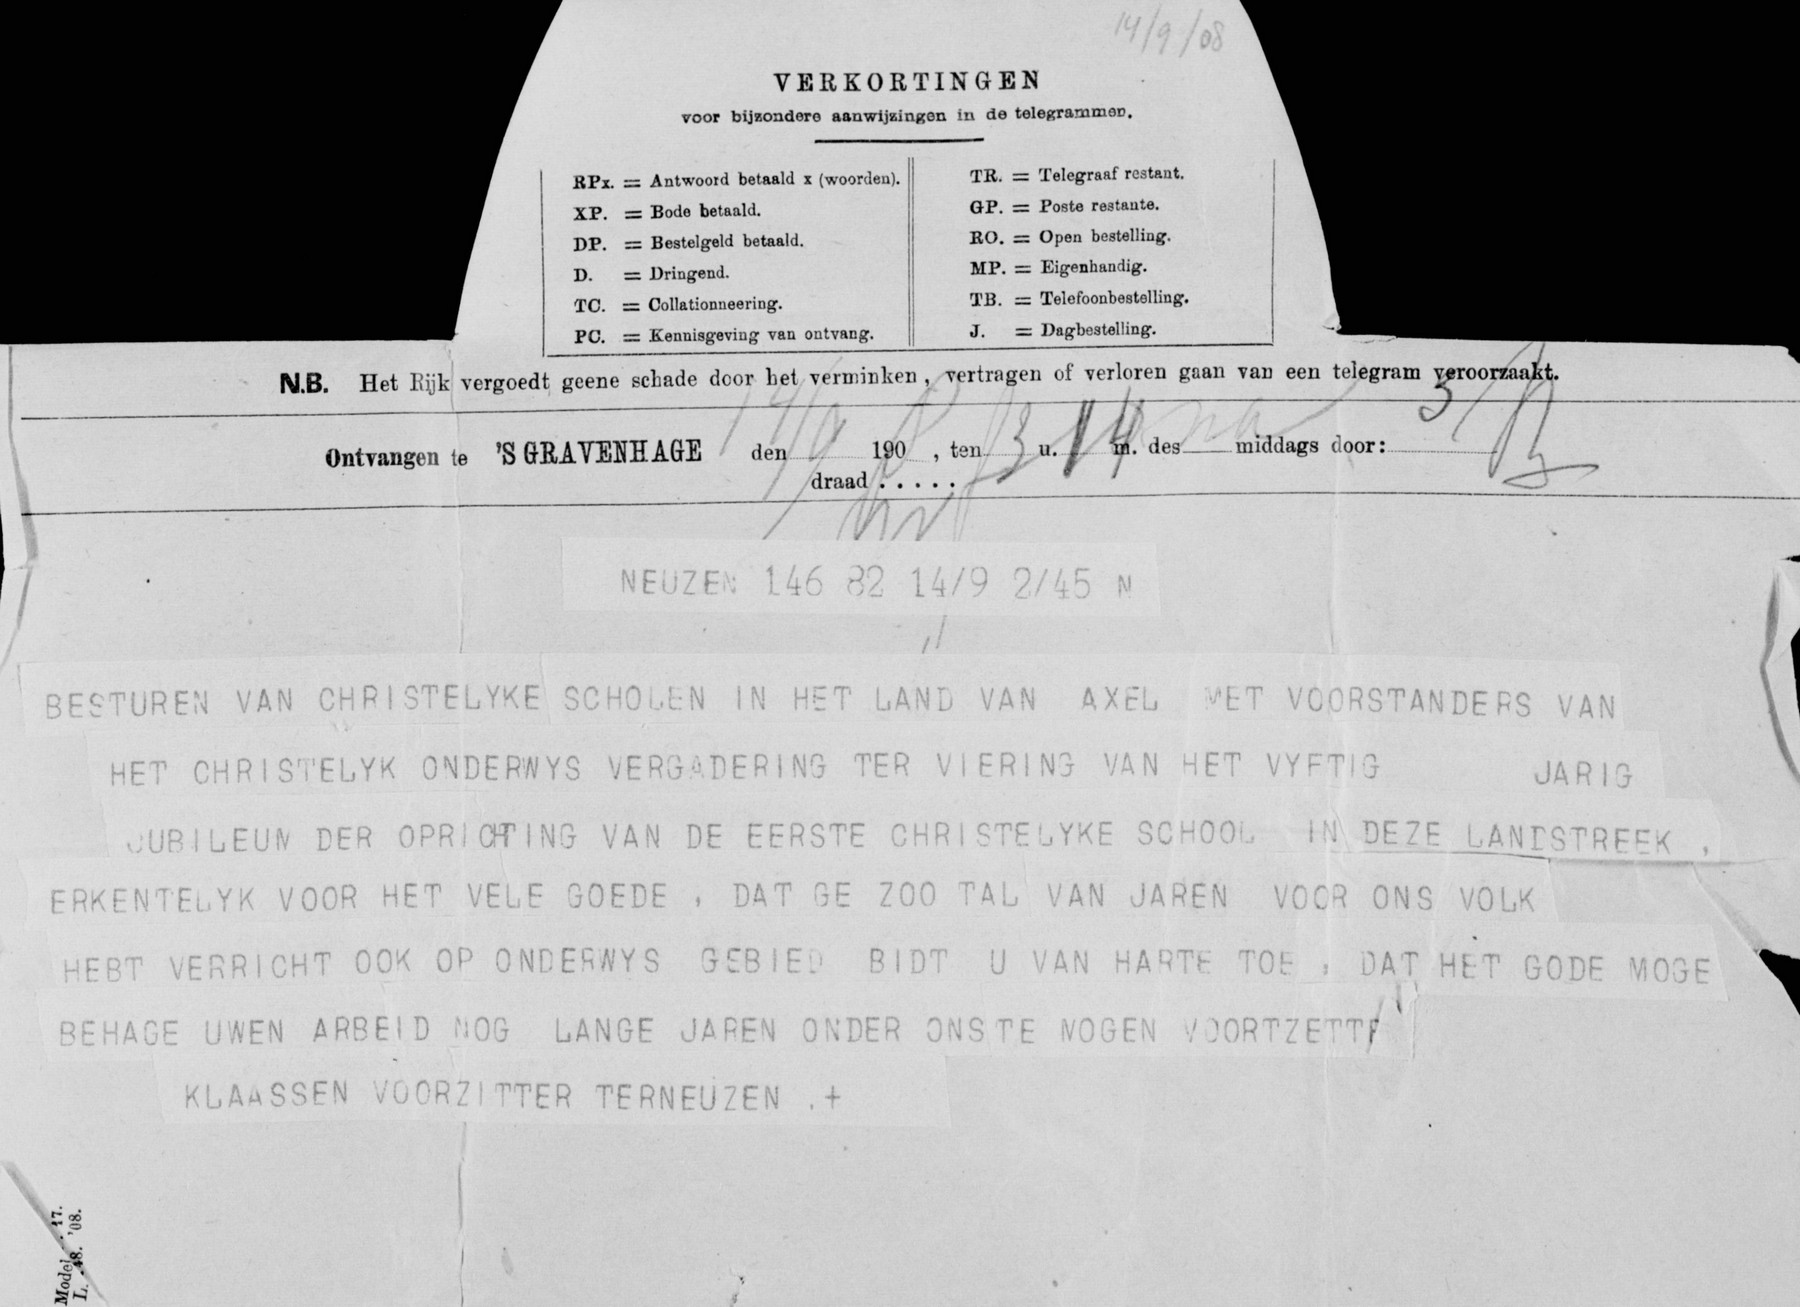 14/9/08
VERKORTINGEN
voor bijzondere aanwijzingen in de telegrammen.
RPx. = Antwoord betaald x (woorden).
XP. = Bode betaald.
DP. = Bestelgeld betaald.
D. = Dringend.
TC. = Collationneering.
PC. = Kennisgeving van ontvang.
TR. = Telegraaf restant.
GP. = Poste restante.
RO. = Open bestelling.
MP. = Eigenhandig.
TB. = Telefoonbestelling.
J. = Dagbestelling.
N.B. Het Rijk vergoedt geene schade door het verminken, vertragen of verloren gaan van een telegram veroorzaakt.
Ontvangen te 'S GRAVENHAGE den 14/9 1908, ten 3 u. 14 m. des na middags door:
draad . . . . .
NEUZEN 146 82 14/9 2/45 N
BESTUREN VAN CHRISTELYKE SCHOLEN IN HET LAND VAN AXEL MET VOORSTANDERS VAN
HET CHRISTELYK ONDERWYS VERGADERING TER VIERING VAN HET VYFTIG JARIG
JUBILEUM DER OPRICHTING VAN DE EERSTE CHRISTELYKE SCHOOL IN DEZE LANDSTREEK ,
ERKENTELYK VOOR HET VELE GOEDE , DAT GE ZOO TAL VAN JAREN VOOR ONS VOLK
HEBT VERRICHT OOK OP ONDERWYS GEBIED BIDT U VAN HARTE TOE , DAT HET GODE MOGE
BEHAGE UWEN ARBEID NOG LANGE JAREN ONDER ONS TE MOGEN VOORTZETTE
KLAASSEN VOORZITTER TERNEUZEN .+
Model 17.
L. 48. '08.